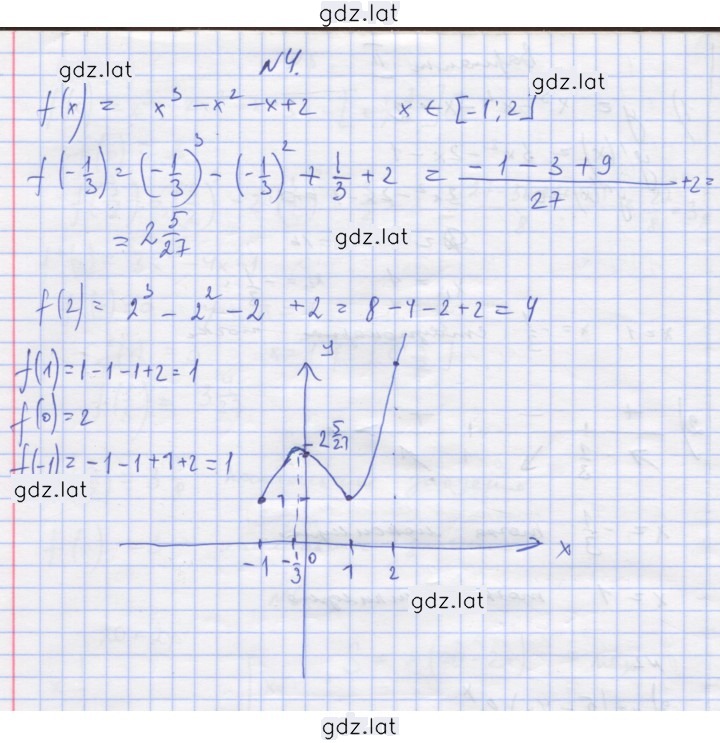 gdz.lat
N4.
gdz.lat
gdz.lat
f(x) = x³ - x² - x + 2 x ∈ [-1; 2]
f(-1/3) = (-1/3)³ - (-1/3)² + 1/3 + 2 = (-1 - 3 + 9)/27 + 2 =
= 2 5/27
gdz.lat
f(2) = 2³ - 2² - 2 + 2 = 8 - 4 - 2 + 2 = 4
f(1) = 1 - 1 - 1 + 2 = 1
y
f(0) = 2
2 5/27
f(-1) = -1 - 1 + 1 + 2 = 1
gdz.lat
1
x
-1 -1/3 0 1 2
gdz.lat
gdz.lat